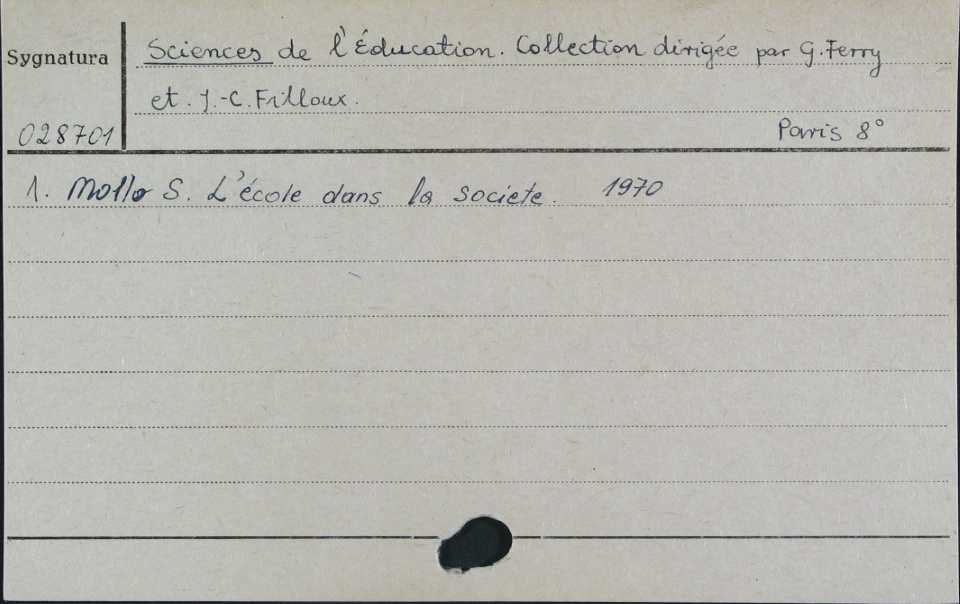 Sygnatura
Sciences de l'Éducation. Collection dirigée par G. Ferry
et. J.-C. Filloux.
028701
Paris 8°
1. Mollo S. L'école dans la societe. 1970